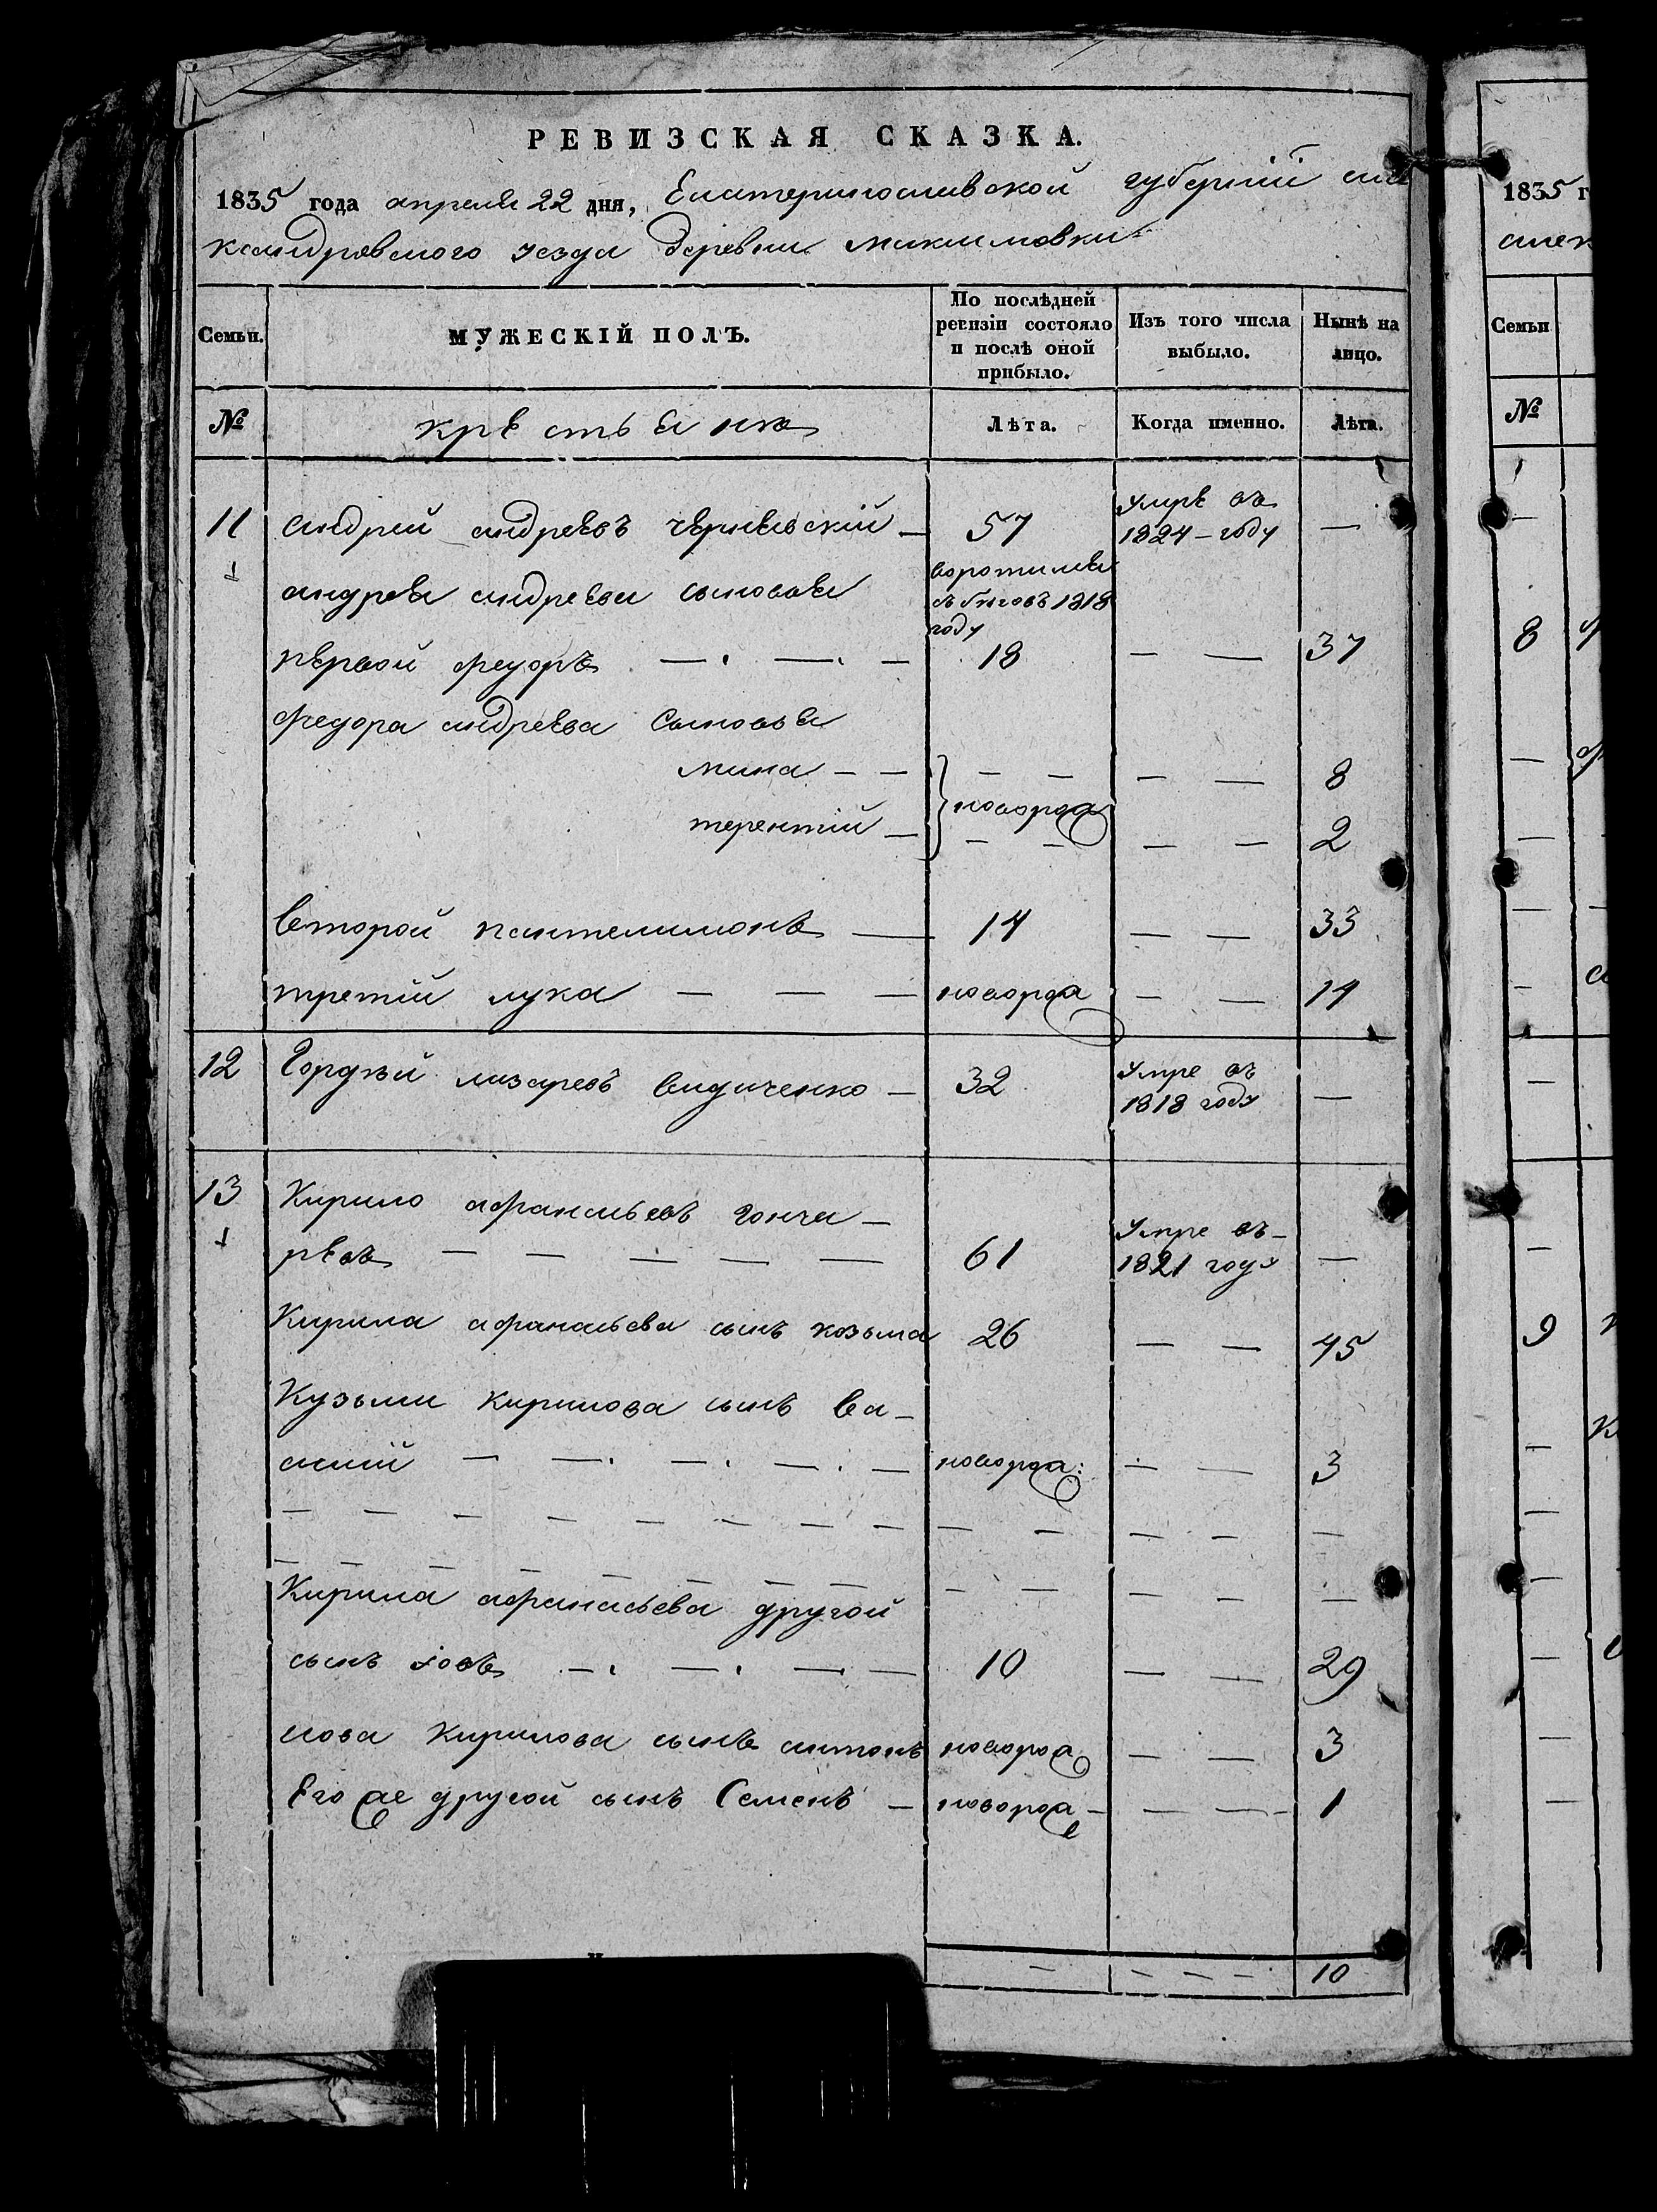 РЕВИЗСКАЯ СКАЗКА.
1835 года апреля 22 дня, Екатеринославской губернiй але
ксандровского уезда деревни
Семьи.
МУЖЕСКIЙ ПОЛЪ.
По послѣдней
ревизiи состояло
и послѣ оной
прибыло.
Изъ того числа
выбыло.
Нынѣ на
лицо.
№
крестьянъ
Лѣта.
Когда именно.
Лѣта.
11 андрей андреевъ — 57 умре въ 1824 — году —
андрея андреева сыновья воротился съ бѣговъ 1818 году
первой федоръ — . — . — 18 — — 37
федора андреева Сыновья
мина — — — — — — 8
новорож
терентiй — — — — — 2
второй пантелимонъ — 14 — — 33
третiй лука — — — новорож — — 14
12 Гордѣй лазаревъ — 32 умре въ 1818 году —
13 Кирило афанасьевъ гонча —
ревъ — — — — — 61 умре въ — 1821 году —
Кирила афанасьева сынъ козьма 26 — — 45
Кузьми кирилова сынъ ва —
силiй — — . — . — . — новорож: — — 3
Кирила афанасьева другой
сынъ iовъ — . — . — — 10 — — 29
иова Кирилова сынъ антонъ новорож — — 3
Его же другой сынъ Семенъ — новорож — — — 1
— — — — 10
1835 г
алек
Семьи
№
8
9